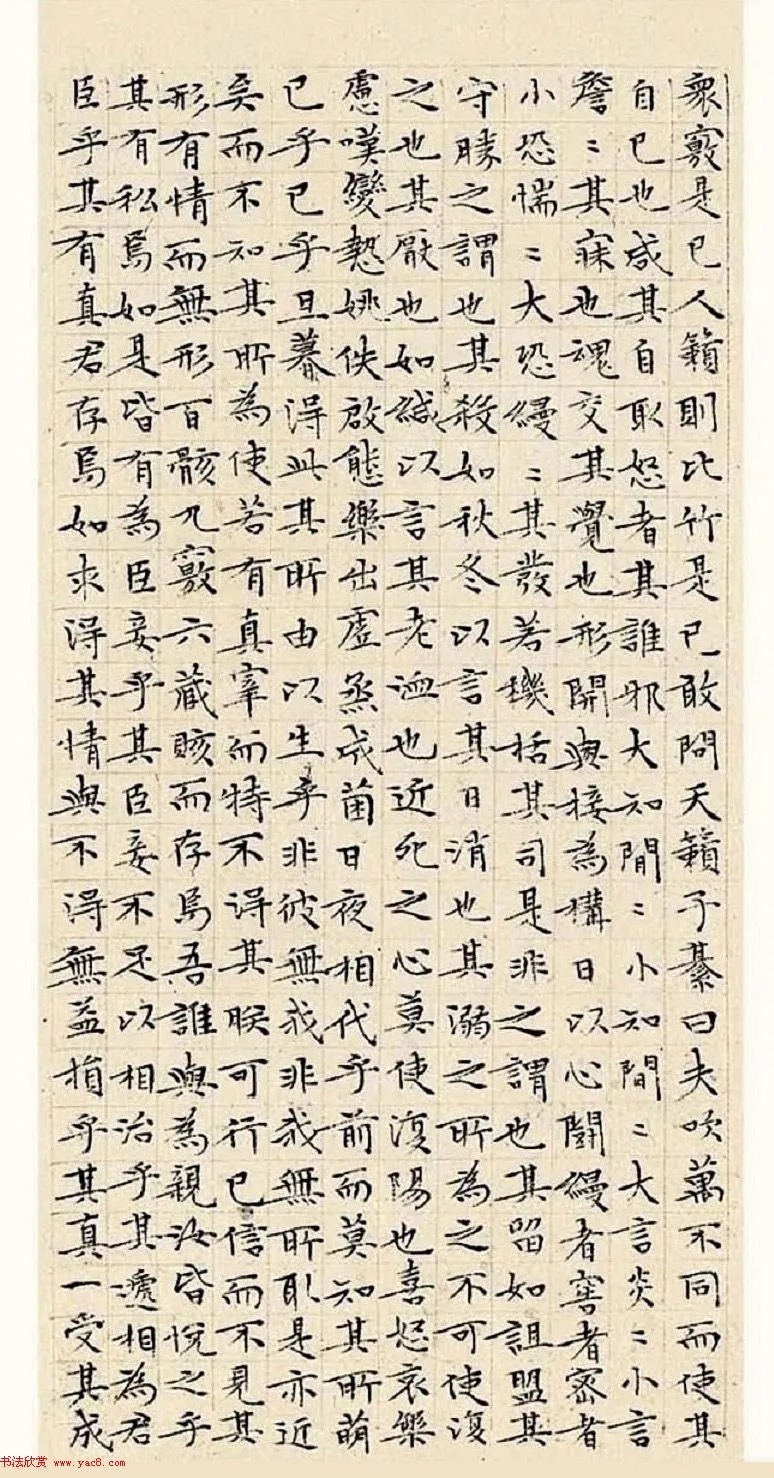 衆竅是已人籟則比竹是已敢問天籟子綦曰夫吹萬不同而使其
自已也咸其自取怒者其誰邪大知閒〻小知間〻大言炎〻小言
詹〻其寐也魂交其覺也形開與接為構日以心鬪縵者窖者密者
小恐惴〻大恐縵〻其發若機栝其司是非之謂也其留如詛盟其
守勝之謂也其殺如秋冬以言其日消也其溺之所為之不可使復
之也其厭也如緘以言其老洫也近死之心莫使復陽也喜怒哀樂
慮嘆變慹姚佚啟態樂出虛蒸成菌日夜相代乎前而莫知其所萌
已乎已乎旦暮得此其所由以生乎非彼無我非我無所取是亦近
矣而不知其所為使若有真宰而特不得其眹可行已信而不見其
形有情而無形百骸九竅六藏賅而存焉吾誰與為親汝皆悅之乎
其有私焉如是皆有為臣妾乎其臣妾不足以相治乎其遞相為君
臣乎其有真君存焉如求得其情與不得無益損乎其真一受其成
书法欣赏 www.yac8.com